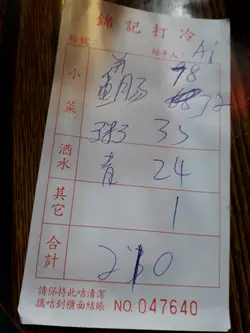 錦記打冷
經手人: Ai
小菜
98
32
粥 35
酒水
青 24
其它
1
合計
210
請保持此咭清潔
攜咭到櫃面結賬
NO. 047640